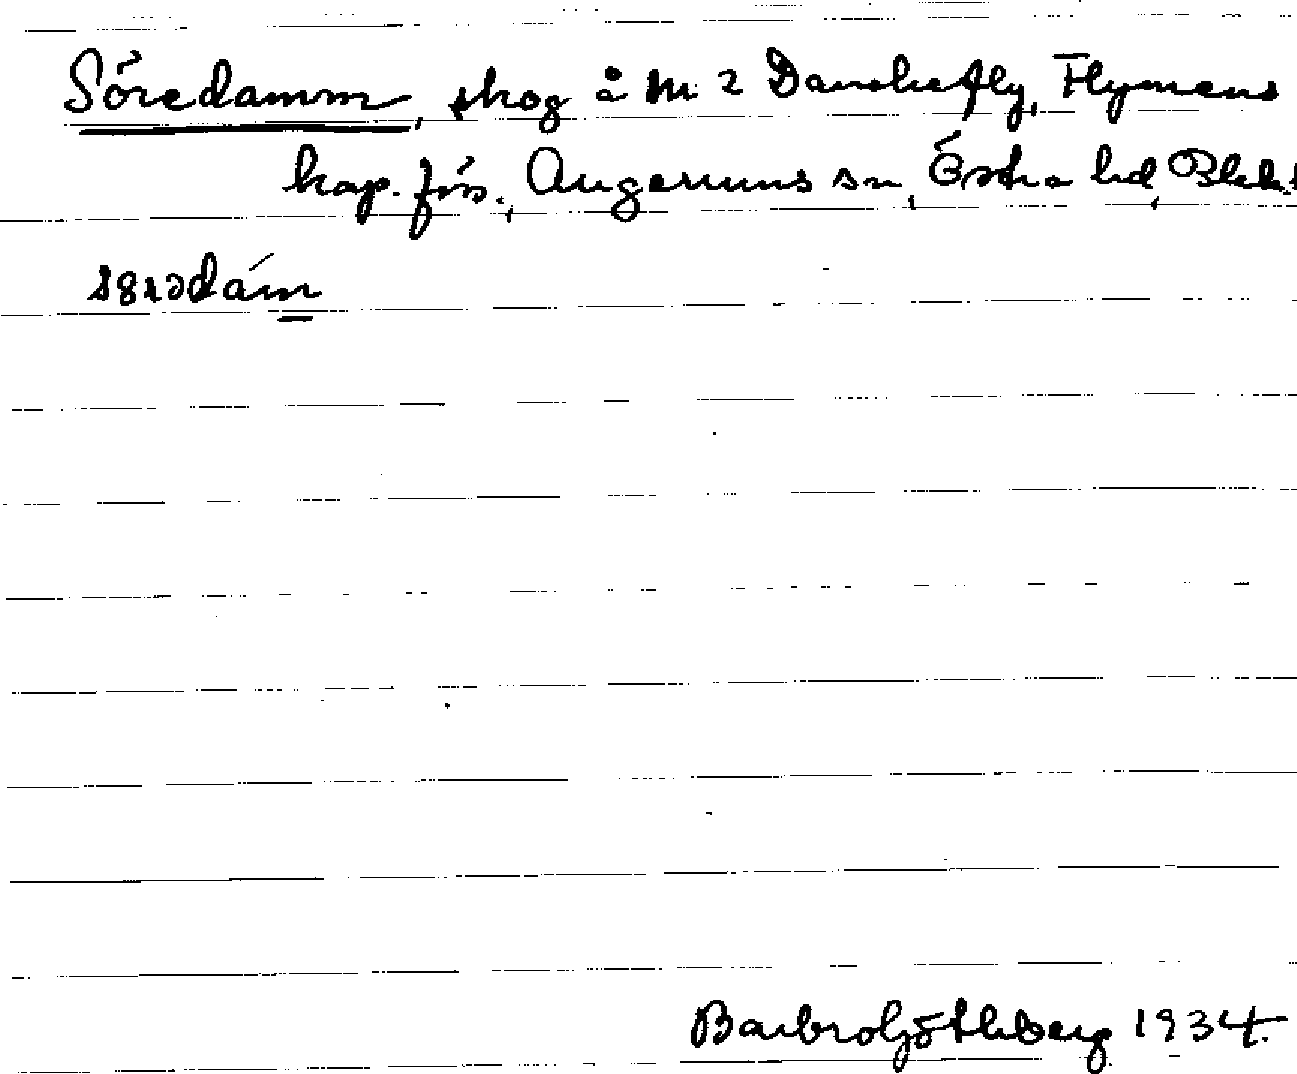 Söredamm, skog å m. 2 Danskefly, Flymens
kap. förs., Augerums sn, Östra hd, Blek.
Barbro Götheberg 1934.